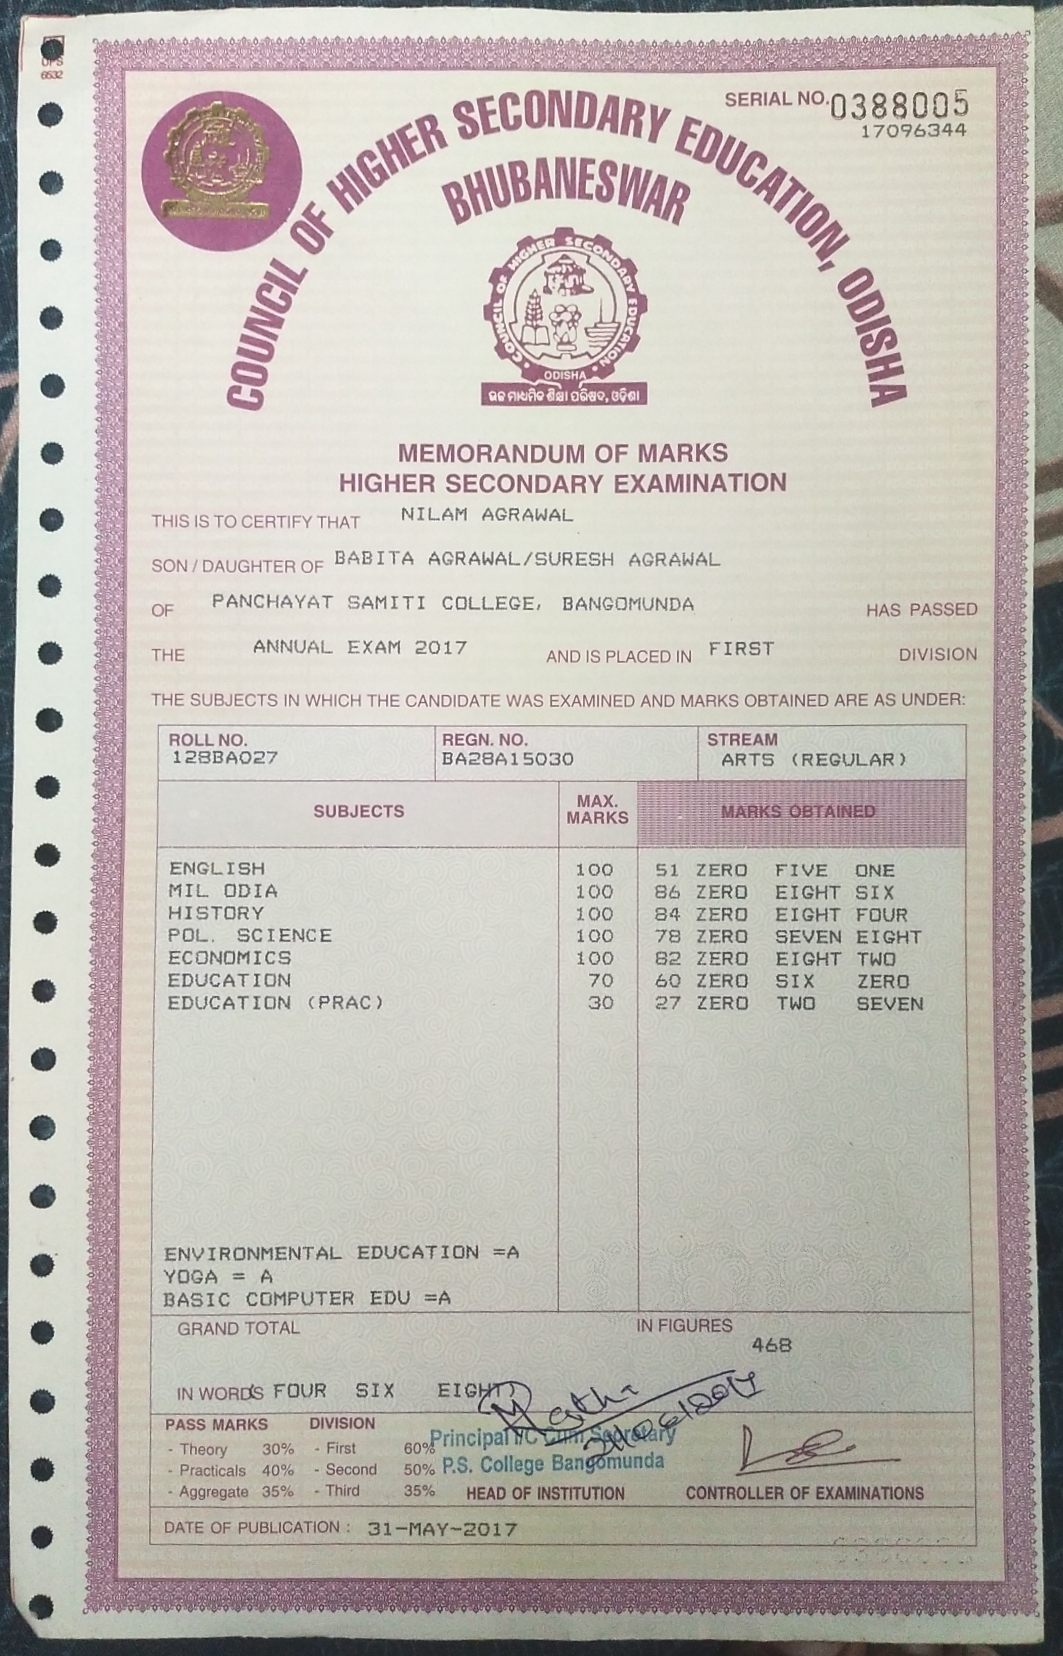 OPS
6532
SERIAL NO. 0388005
17096344
COUNCIL OF HIGHER SECONDARY EDUCATION, ODISHA
BHUBANESWAR
COUNCIL OF HIGHER SECONDARY EDUCATION
ODISHA
ଉଚ୍ଚ ମାଧ୍ୟମିକ ଶିକ୍ଷା ପରିଷଦ, ଓଡ଼ିଶା
MEMORANDUM OF MARKS
HIGHER SECONDARY EXAMINATION
THIS IS TO CERTIFY THAT NILAM AGRAWAL
SON / DAUGHTER OF BABITA AGRAWAL/SURESH AGRAWAL
OF PANCHAYAT SAMITI COLLEGE, BANGOMUNDA HAS PASSED
THE ANNUAL EXAM 2017 AND IS PLACED IN FIRST DIVISION
THE SUBJECTS IN WHICH THE CANDIDATE WAS EXAMINED AND MARKS OBTAINED ARE AS UNDER:
ROLL NO. REGN. NO. STREAM
128BA027 BA28A15030 ARTS (REGULAR)
SUBJECTS MAX. MARKS MARKS OBTAINED
ENGLISH 100 51 ZERO FIVE ONE
MIL ODIA 100 86 ZERO EIGHT SIX
HISTORY 100 84 ZERO EIGHT FOUR
POL. SCIENCE 100 78 ZERO SEVEN EIGHT
ECONOMICS 100 82 ZERO EIGHT TWO
EDUCATION 70 60 ZERO SIX ZERO
EDUCATION (PRAC) 30 27 ZERO TWO SEVEN
ENVIRONMENTAL EDUCATION =A
YOGA = A
BASIC COMPUTER EDU =A
GRAND TOTAL IN FIGURES
468
IN WORDS FOUR SIX EIGHT)
PASS MARKS DIVISION
- Theory 30% - First 60% Principal I/C Cum Secretary
- Practicals 40% - Second 50% P.S. College Bangomunda
- Aggregate 35% - Third 35% HEAD OF INSTITUTION CONTROLLER OF EXAMINATIONS
DATE OF PUBLICATION : 31-MAY-2017